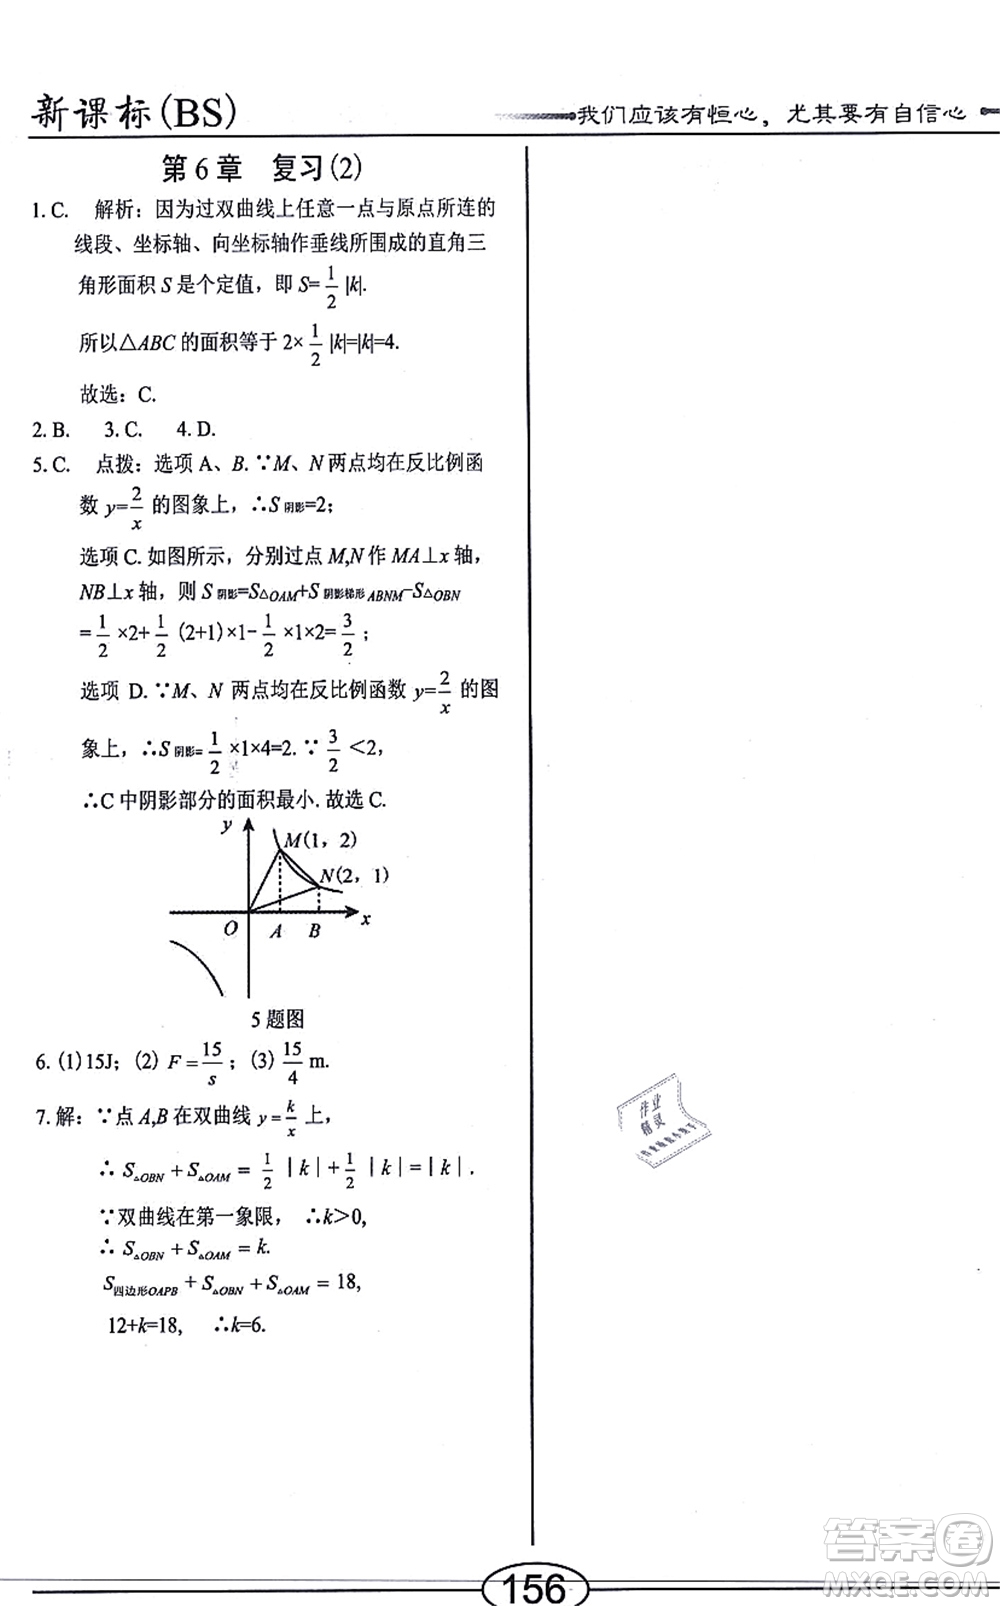 新课标(BS)
我们应该有恒心，尤其要有自信心
第6章 复习(2)
1. C. 解析：因为过双曲线上任意一点与原点所连的
线段、坐标轴、向坐标轴作垂线所围成的直角三
角形面积 S 是个定值，即 S=1/2|k|.
所以△ABC 的面积等于 2×1/2|k|=|k|=4.
故选：C.
2. B. 3. C. 4. D.
5. C. 点拨：选项 A、B. ∵M、N 两点均在反比例函
数 y=2/x 的图象上，∴S阴影=2；
选项 C. 如图所示，分别过点 M,N 作 MA⊥x 轴，
NB⊥x 轴，则 S阴影=S△OAM+S阴影梯形ABNM-S△OBN
=1/2×2+1/2(2+1)×1-1/2×1×2=3/2；
选项 D. ∵M、N 两点均在反比例函数 y=2/x 的图
象上，∴S阴影=1/2×1×4=2. ∵3/2<2,
∴C 中阴影部分的面积最小. 故选 C.
y
M(1，2)
N(2，1)
O A B x
5题图
6. (1)15J；(2) F=15/s；(3) 15/4 m.
7. 解：∵点 A,B 在双曲线 y=k/x 上，
∴S△OBN+S△OAM=1/2|k|+1/2|k|=|k|.
∵双曲线在第一象限，∴k>0,
∴S△OBN+S△OAM=k.
S四边形OAPB+S△OBN+S△OAM=18,
12+k=18, ∴k=6.
作业
精灵
答案卷
MXQE.COM
156